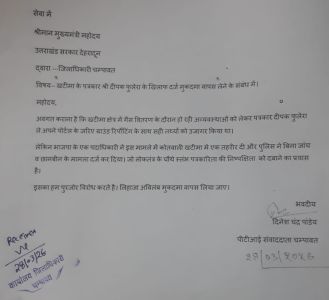 सेवा में
श्रीमान मुख्यमंत्री महोदय
उत्तराखंड सरकार देहरादून
द्वारा –जिलाधिकारी चम्पावत
विषय– खटीमा के पत्रकार श्री दीपक फुलेरा के खिलाफ दर्ज मुकदमा वापस लेने के संबंध में।
महोदय,
अवगत कराना है कि खटीमा क्षेत्र में गैस वितरण के दौरान हो रही अव्यवस्थाओं को लेकर पत्रकार दीपक फुलेरा
ने अपने पोर्टल के जरिए ग्राउंड रिपोर्टिंग के साथ सही तथ्यों को उजागर किया था।
लेकिन भाजपा के एक पदाधिकारी ने इस मामले में कोतवाली खटीमा में एक तहरीर दी और पुलिस ने बिना जांच
व छानबीन के मामला दर्ज कर दिया। जो लोकतंत्र के चौथे स्तंभ पत्रकारिता की निष्पक्षिता को दबाने का प्रयास
है।
इसका हम पुरजोर विरोध करते है। लिहाजा अविलंब मुकदमा वापस लिया जाए।
भवदीय
दिनेश चंद्र पांडेय
पीटीआई संवाददाता चम्पावत
28/03/2026
Received
28/03/26
कार्यालय जिलाधिकारी
चम्पावत